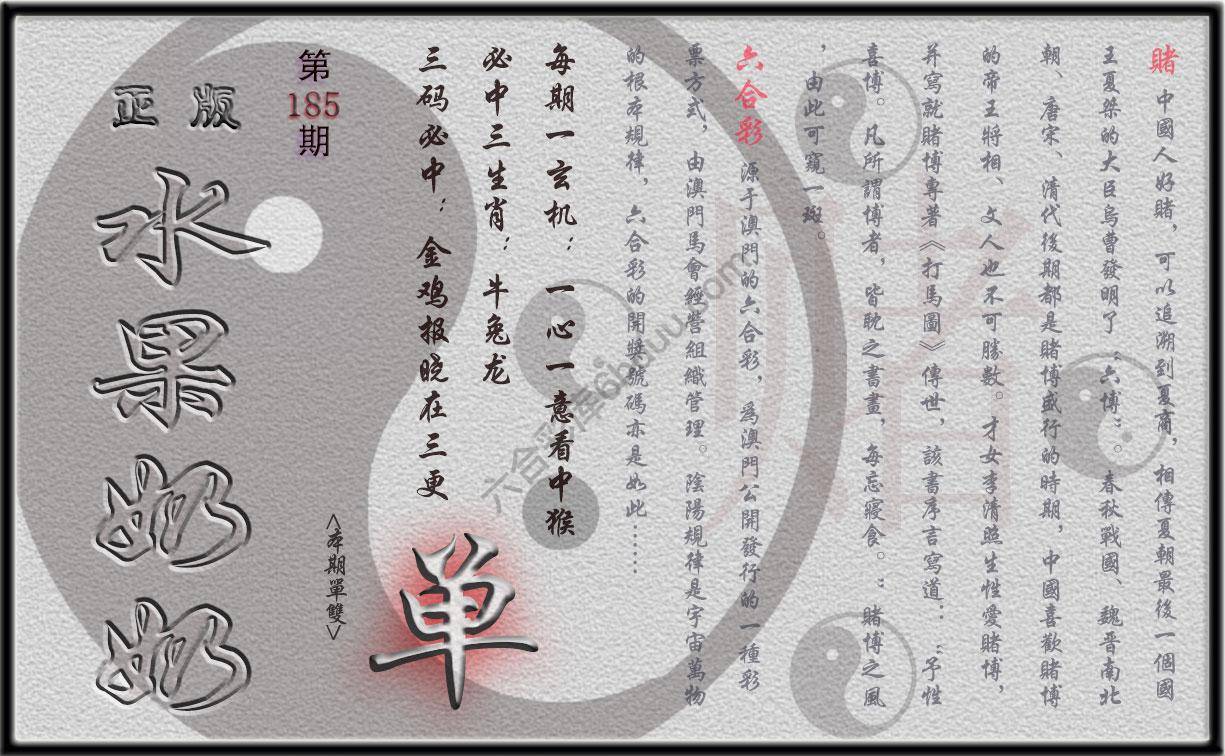 賭 中國人好賭，可以追溯到夏商，相傳夏朝最後一個國
王夏桀的大臣烏曹發明了“六博”。春秋戰國、魏晋南北
朝、唐宋、清代後期都是賭博盛行的時期，中國喜歡賭博
的帝王將相、文人也不可勝數。才女李清照生性愛賭博，
并寫就賭博專著《打馬圖》傳世，該書序言寫道：“予性
喜博。凡所謂博者，皆耽之晝畫，每忘寢食。”賭博之風
，由此可窺一斑。
六合彩 源于澳門的六合彩，爲澳門公開發行的一種彩
票方式，由澳門馬會經營組織管理。陰陽規律是宇宙萬物
的根本規律，六合彩的開獎號碼亦是如此……
每期一玄机：一心一意看中猴
必中三生肖：牛兔龙
三码必中：金鸡报晓在三更
单
<本期單雙>
第
185
期
正版
水果奶奶
賭
六合彩库6hduu.com